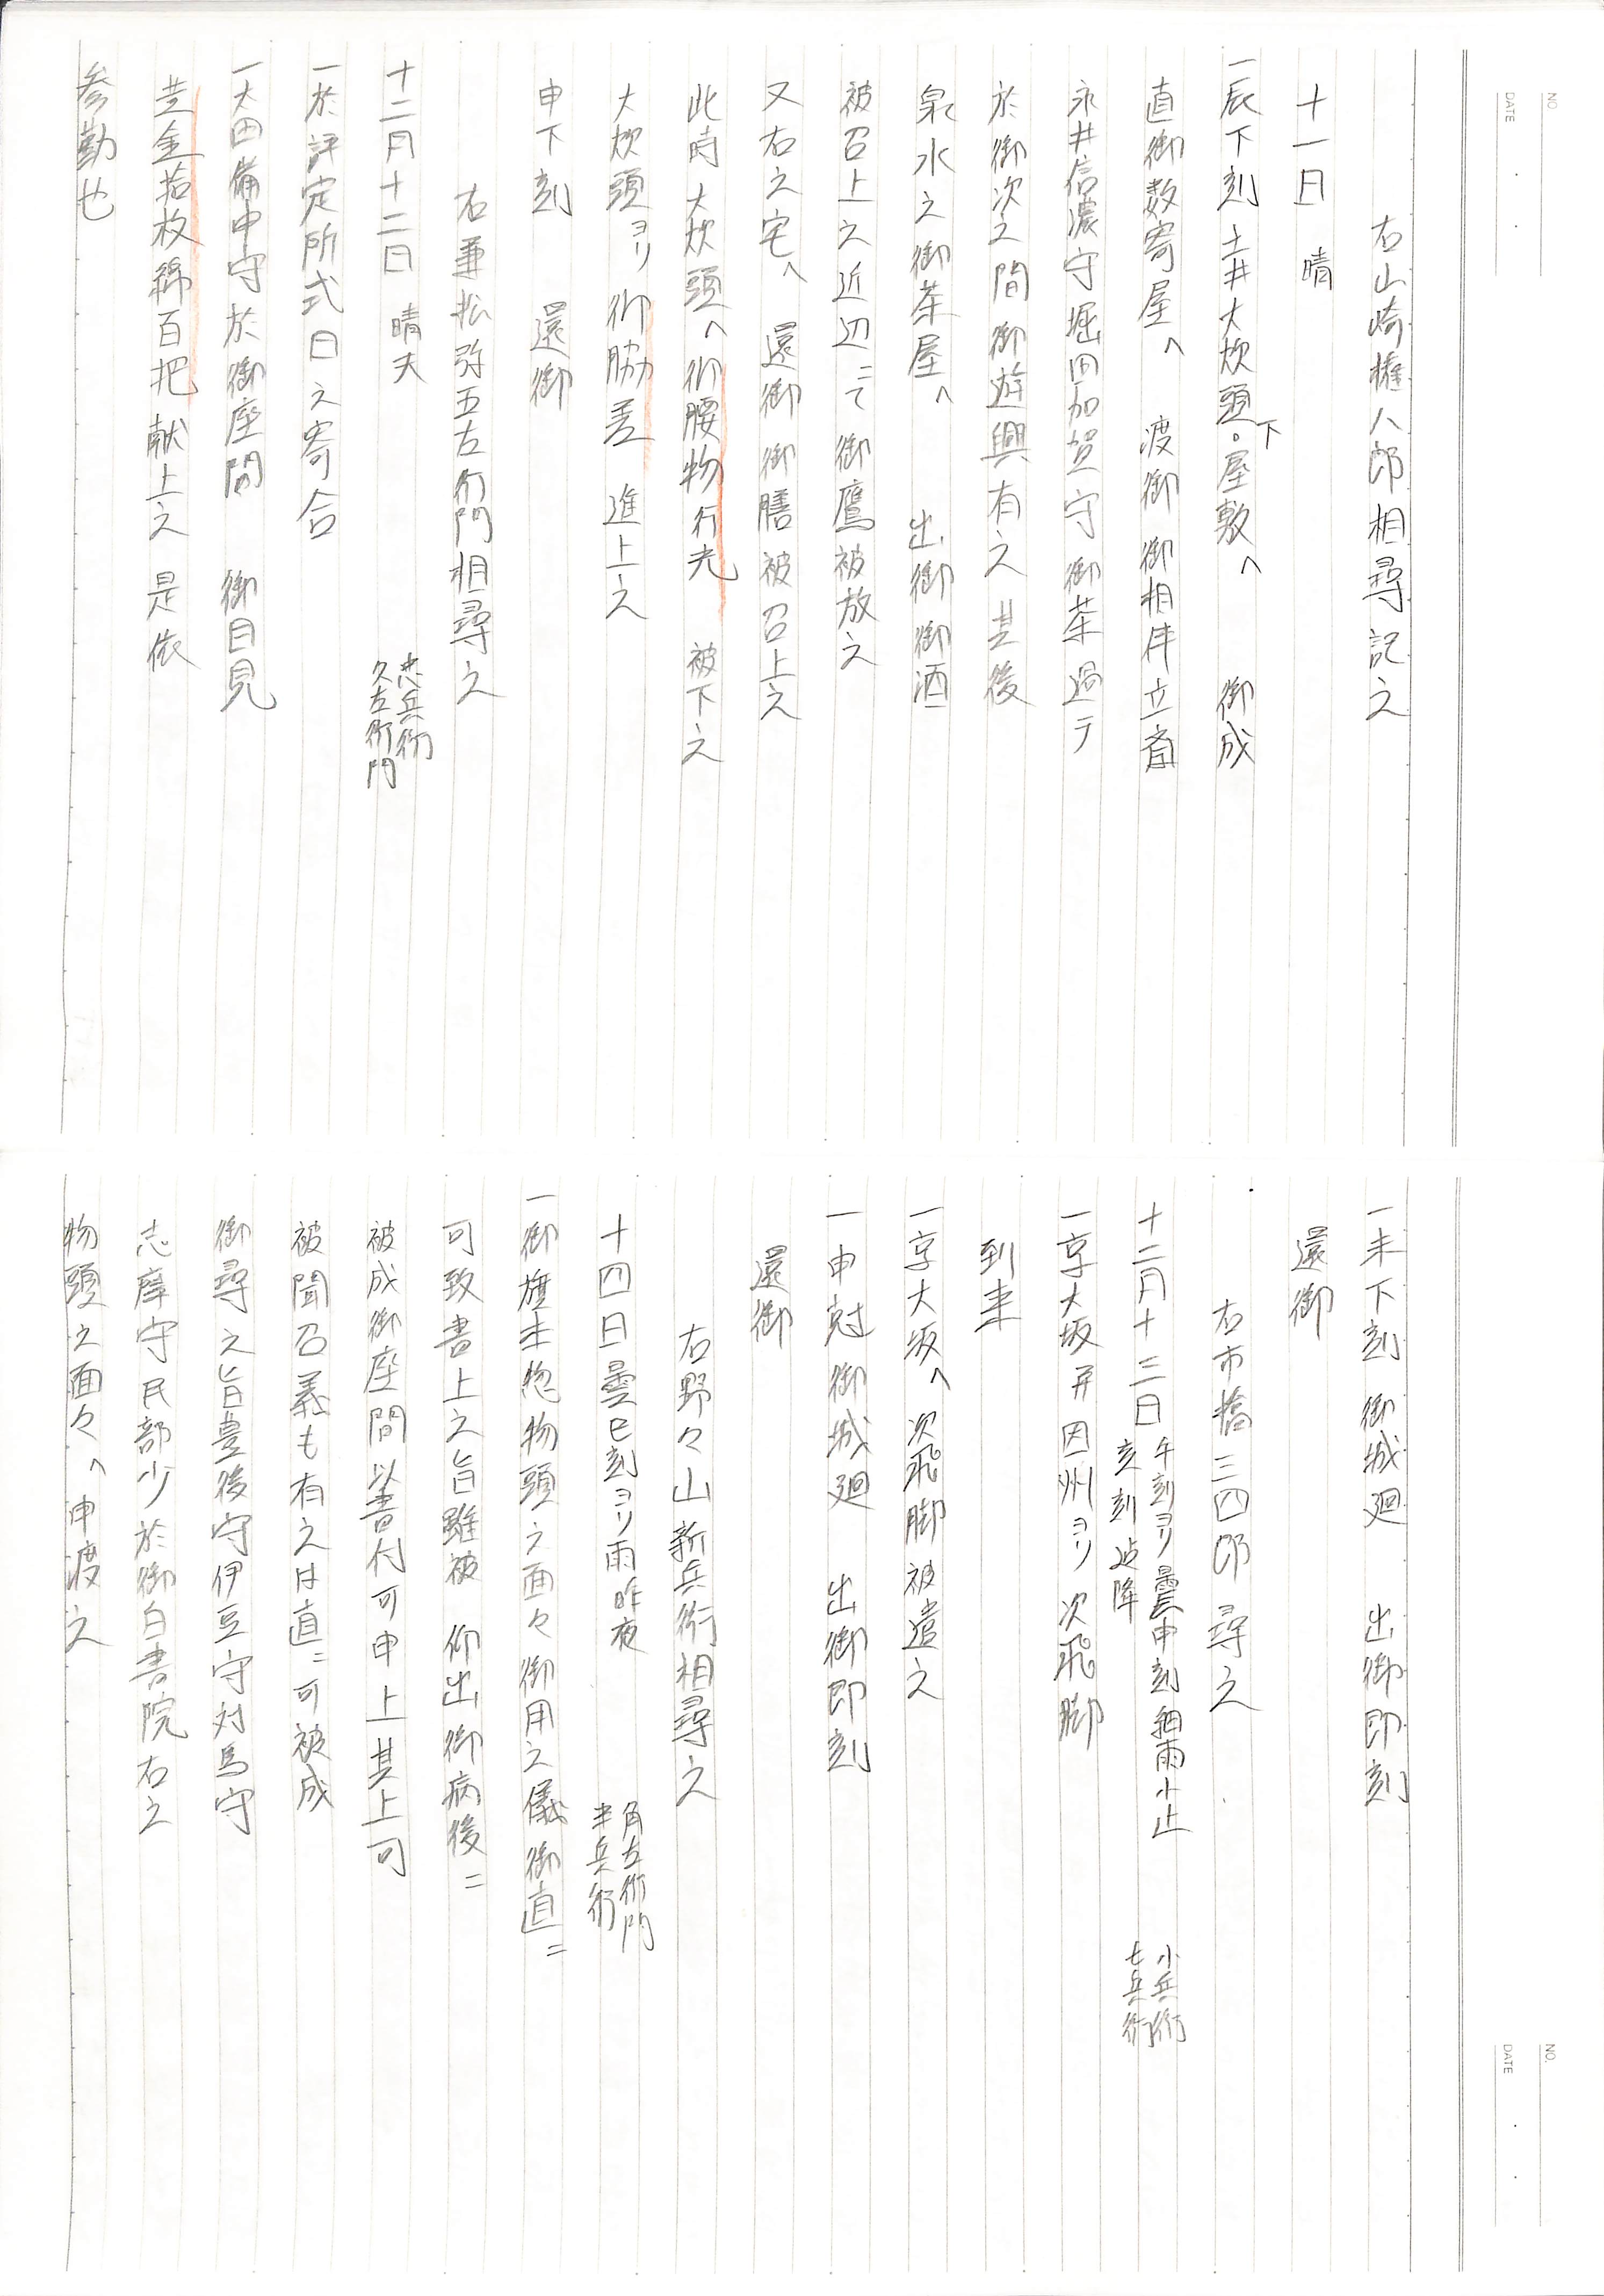 NO.
DATE
右山崎権八郎相尋記之
十一日 晴
一辰下刻 土井大炊頭下屋敷へ 御成
直御数寄屋へ 渡御 御相伴立斎
永井信濃守堀田加賀守 御茶過テ
於御次之間 御遊興有之 其後
泉水之御茶屋へ 出御御酒
被召上之近辺ニて御鷹被放之
又右之宅へ 還御 御膳被召上之
此時大炊頭へ御腰物行光 被下之
大炊頭ヨリ御脇差 進上之
申下刻 還御
右兼松弥五左衛門相尋之
十二月十二日 晴天 忠兵衛
久左衛門
一於評定所式日之寄合
一大田備中守於御座間 御目見
其金拾枚綿百把献上之 是依
参勤也
NO.
DATE
一未下刻 御城廻 出御即刻
還御
右市橋三四郎尋之
十二月十三日 午刻ヨリ曇申刻細雨小止 小兵衛
亥刻迠降 七兵衛
一京大坂并因州ヨリ次飛脚
到来
一京大坂へ次飛脚被遣之
一申尅御城廻 出御即刻
還御
右野々山新兵衛相尋之
十四日曇巳刻ヨリ雨昨夜 角左衛門
半兵衛
一御旗本惣物頭之面々御用之儀御直ニ
可致言上之旨雖被 仰出御病後ニ
被成御座間以書付可申上其上可
被聞召義も有之は直ニ可被成
御尋之旨豊後守伊豆守対馬守
志摩守民部少於御白書院右之
物頭之面々へ申渡之